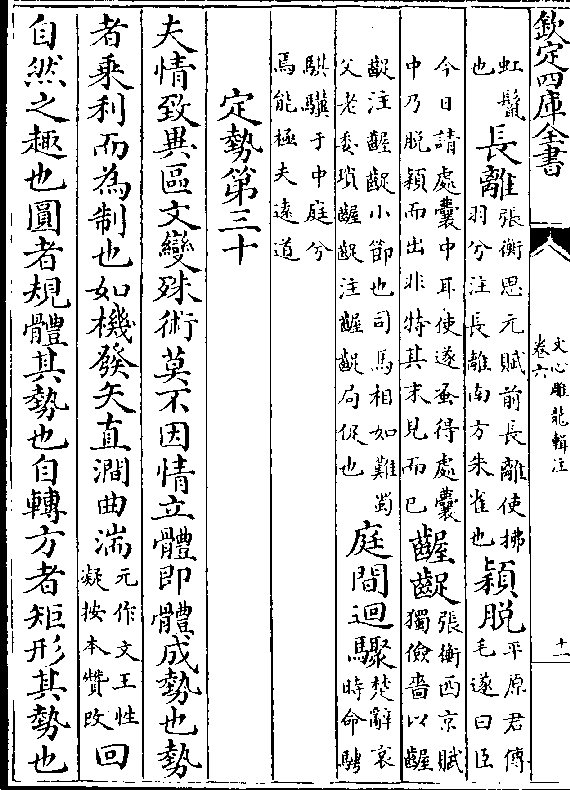 欽定四庫全書
文心雕龍輯注
卷六
十一
虹鬛
也
長離
張衡思元賦前長離使拂
羽兮注長離南方朱雀也
穎脱
平原君傳
毛遂曰臣
今日請處囊中耳使遂蚤得處囊
中乃脱穎而出非特其末見而已
齷齪
張衡西京賦
獨儉嗇以齷
齪注齷齪小節也司馬相如難蜀
父老委瑣齷齪注齷齪局促也
庭間迴驟
楚辭哀
時命騁
騏驥于中庭兮
焉能極夫遠道
定勢第三十
夫情致異區文變殊術莫不因情立體即體成勢也勢
者乘利而為制也如機發矢直澗曲湍
元作文王性
凝按本贊改
回
自然之趣也圓者規體其勢也自轉方者矩形其勢也